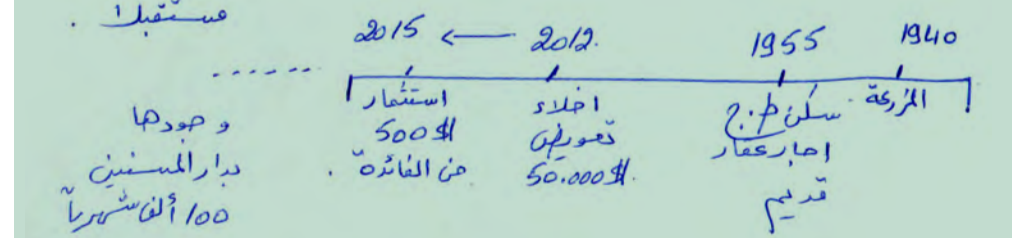 مستقبلاً .
1940 1955 2012 → 2015 ......
المزرعة
سكن ط.ج
اجار عقار
قديم
اخلاء
تعويض
50.000$.
استثمار
500$
من الفائدة .
وجودها
بدار المسنين
100 ألف شهرياً